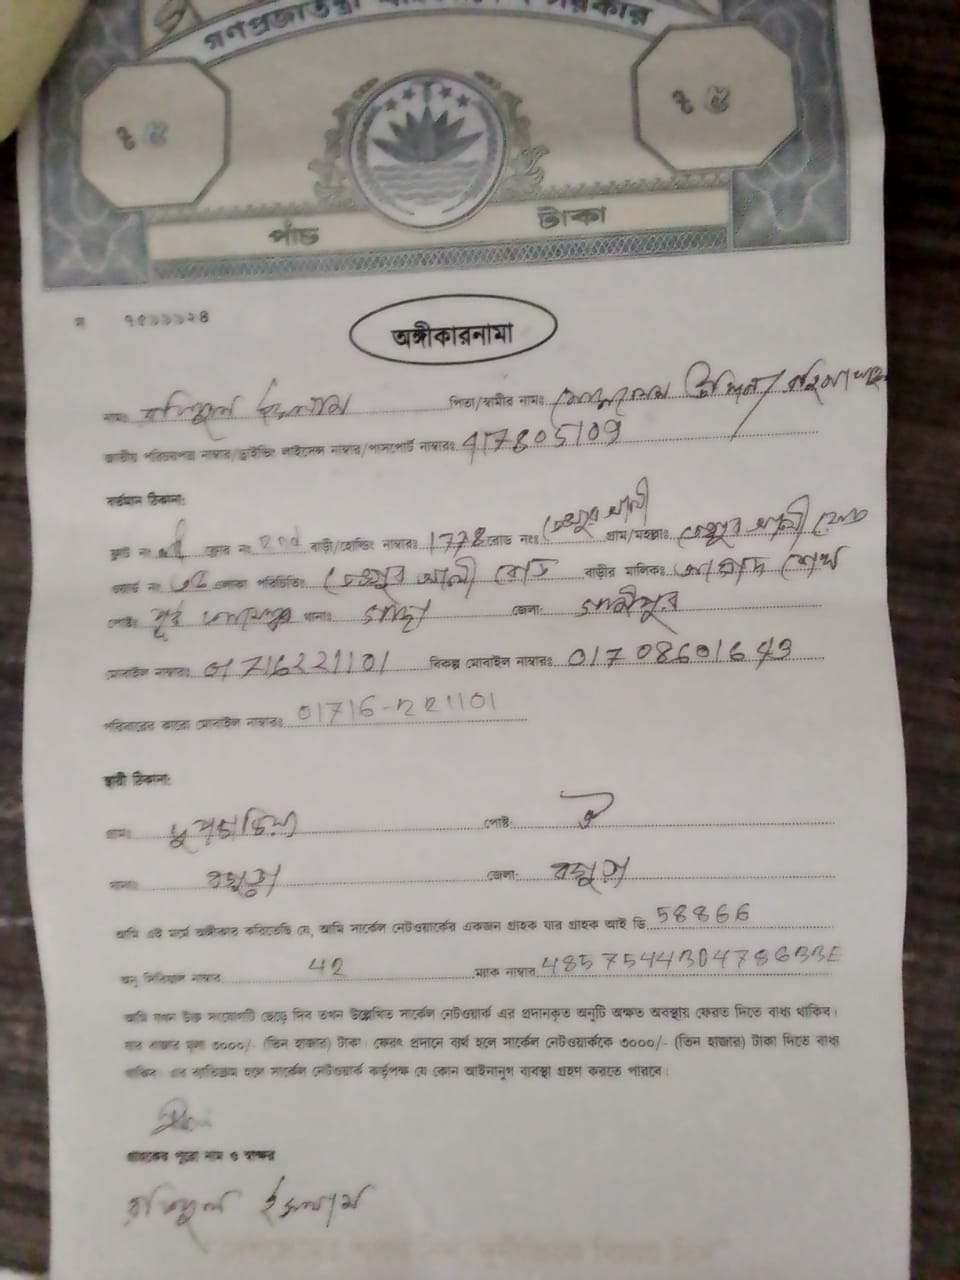 গণপ্রজাতন্ত্রী বাংলাদেশ সরকার
৳ ৫ ৳ ৫
পাঁচ টাকা
অঙ্গীকারনামা
নামঃ রফিকুল ইসলাম পিতা/স্বামীর নামঃ
জাতীয় পরিচয়পত্র নাম্বার/ড্রাইভিং লাইসেন্স নাম্বার/পাসপোর্ট নাম্বারঃ 417805109
বর্তমান ঠিকানা:
ফ্ল্যাট নং ফ্লোর নং 2nd বাড়ী/হোল্ডিং নাম্বারঃ 1778 রোড নং গ্রাম/মহল্লাঃ
ওয়ার্ড নং এলাকা পরিচিতিঃ বাড়ীর মালিকঃ
পোষ্টঃ পূর্ব থানাঃ গাছা জেলা: গাজীপুর
মোবাইল নাম্বারঃ 01716221101 বিকল্প মোবাইল নাম্বারঃ 01708601649
পরিবারের কারো মোবাইল নাম্বারঃ 01716-221101
স্থায়ী ঠিকানা:
গ্রামঃ দুপচাচিয়া পোষ্ট: ঐ
থানাঃ বগুড়া জেলা: বগুড়া
আমি এই মর্মে অঙ্গীকার করিতেছি যে, আমি সার্কেল নেটওয়ার্কের একজন গ্রাহক যার গ্রাহক আই ডি 58866
অনু সিরিয়াল নাম্বার 42 ম্যাক নাম্বার 4857544304786BBE
আমি যখন উক্ত সংযোগটি ছেড়ে দিব তখন উল্লেখিত সার্কেল নেটওয়ার্ক এর প্রদানকৃত অনুটি অক্ষত অবস্থায় ফেরত দিতে বাধ্য থাকিব।
যার বাজার মূল্য ৩০০০/- (তিন হাজার) টাকা। ফেরৎ প্রদানে ব্যর্থ হলে সার্কেল নেটওয়ার্ককে ৩০০০/- (তিন হাজার) টাকা দিতে বাধ্য
থাকিব। এর ব্যতিক্রম হলে সার্কেল নেটওয়ার্ক কর্তৃপক্ষ যে কোন আইনানুগ ব্যবস্থা গ্রহণ করতে পারবে।
গ্রাহকের পুরো নাম ও স্বাক্ষর
রফিকুল ইসলাম